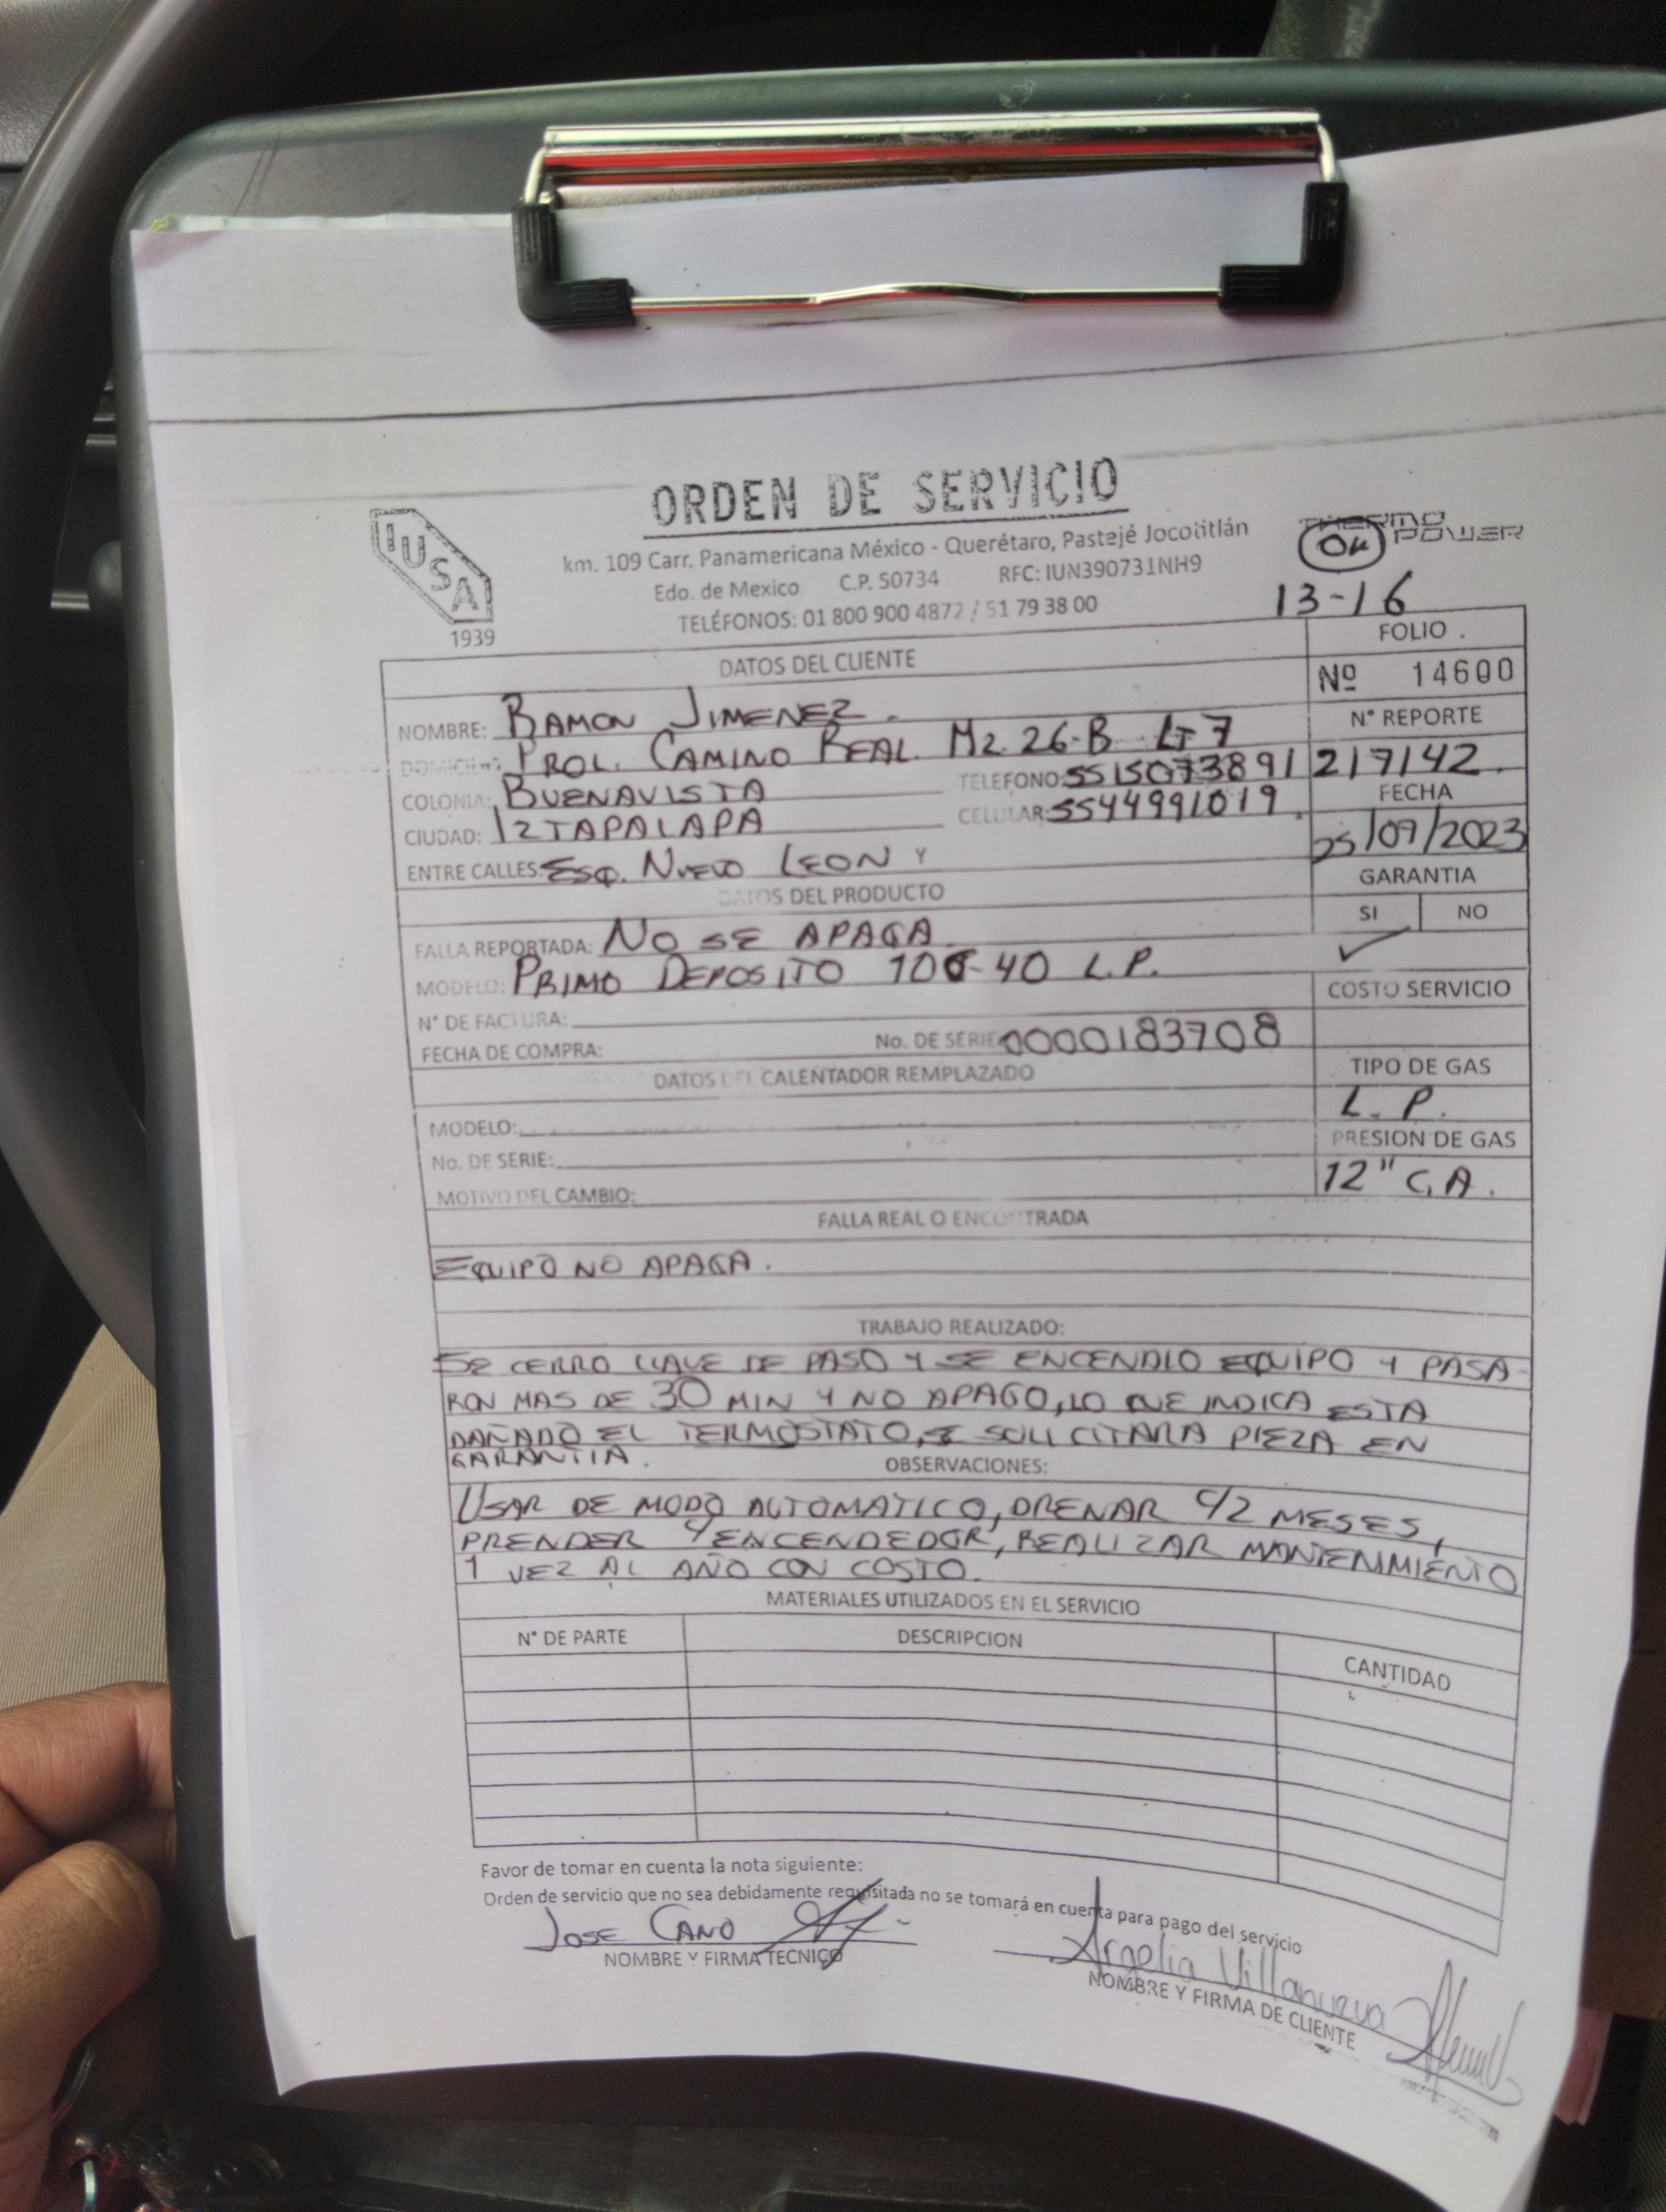 ORDEN DE SERVICIO
IUSA
1939
km. 109 Carr. Panamericana México - Querétaro, Pastejé Jocotitlán
Edo. de Mexico C.P. 50734 RFC: IUN390731NH9
TELÉFONOS: 01 800 900 4872 / 51 79 38 00
THERMO
POWER
OK
13-16
DATOS DEL CLIENTE
FOLIO .
Nº 14600
NOMBRE: RAMON JIMENEZ.
N° REPORTE
DOMICILIO: PROL. CAMINO REAL. MZ. 26-B LT 7
217142.
COLONIA: BUENAVISTA TELEFONO: 5515073891
CIUDAD: IZTAPALAPA CELULAR: 5544991019.
FECHA
25/09/2023
ENTRE CALLES: ESQ. NUEVO LEON Y
GARANTIA
DATOS DEL PRODUCTO
SI NO
✓
FALLA REPORTADA: NO SE APAGA
MODELO: PRIMO DEPOSITO 106-40 L.P.
COSTO SERVICIO
N° DE FACTURA:
FECHA DE COMPRA: No. DE SERIE 0000183708
TIPO DE GAS
L. P.
DATOS DEL CALENTADOR REMPLAZADO
MODELO:
PRESION DE GAS
No. DE SERIE:
12" C.A.
MOTIVO DEL CAMBIO:
FALLA REAL O ENCONTRADA
EQUIPO NO APAGA.
TRABAJO REALIZADO:
SE CERRO LLAVE DE PASO Y SE ENCENDIO EQUIPO Y PASA-
RON MAS DE 30 MIN Y NO APAGO, LO QUE INDICA ESTA
DAÑADO EL TERMOSTATO, SE SOLICITARA PIEZA EN
GARANTIA.
OBSERVACIONES:
USAR DE MODO AUTOMATICO, DRENAR C/2 MESES,
PRENDER C/ENCENDEDOR, REALIZAR MANTENIMIENTO
1 VEZ AL AÑO CON COSTO.
MATERIALES UTILIZADOS EN EL SERVICIO
N° DE PARTE DESCRIPCION CANTIDAD
Favor de tomar en cuenta la nota siguiente:
Orden de servicio que no sea debidamente requisitada no se tomará en cuenta para pago del servicio
JOSE CANO
NOMBRE Y FIRMA TECNICO
Argelia Villanueva
NOMBRE Y FIRMA DE CLIENTE